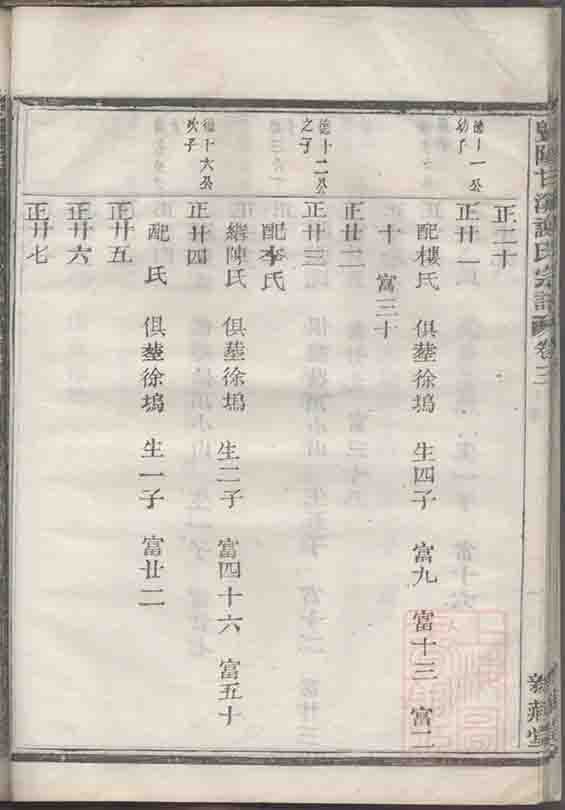 正二十
正廿一
幼子
配樓氏 俱塟徐塢 生四子 富九 富十三 富二
十 富三十
正廿二
德十二公
之子
正廿三
配李氏
繼陳氏 俱塟徐塢 生二子 富四十六 富五十
德十六公
次子
正廿四
配 氏 俱塟徐塢 生一子 富廿二
正廿五
正廿六
正廿七